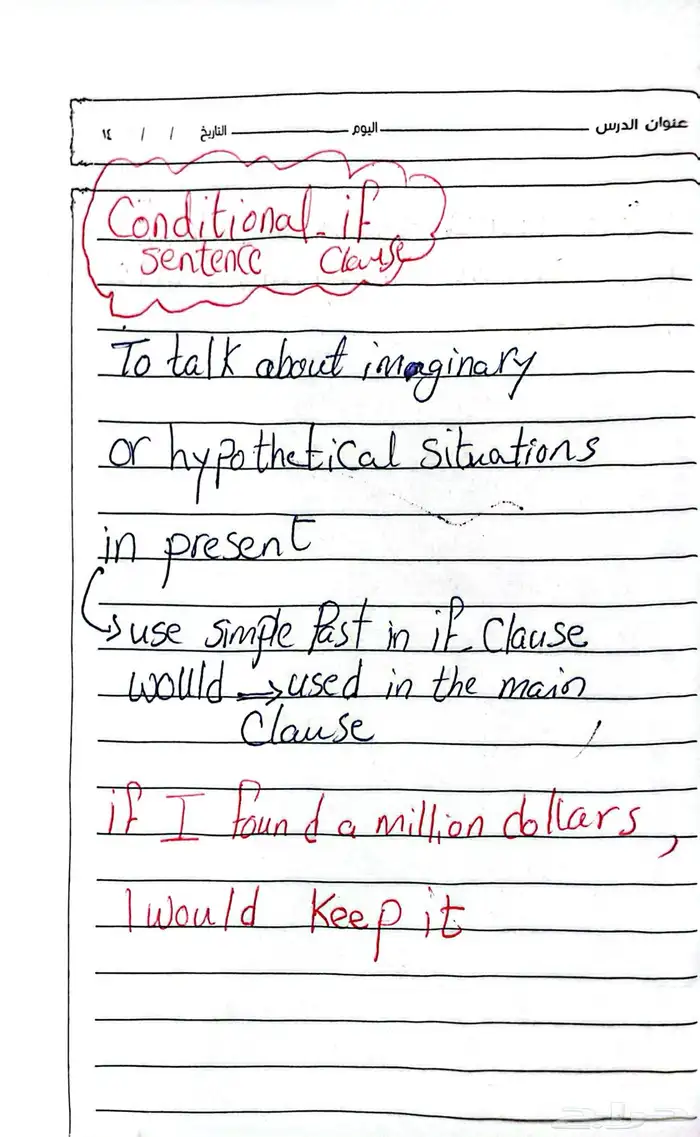 عنوان الدرس اليوم التاريخ / / ١٤
Conditional if
sentence Clause
To talk about imaginary
or hypothetical situations
in present
use simple Past in if Clause
would → used in the main
Clause
if I found a million dollars,
I would keep it
حراج